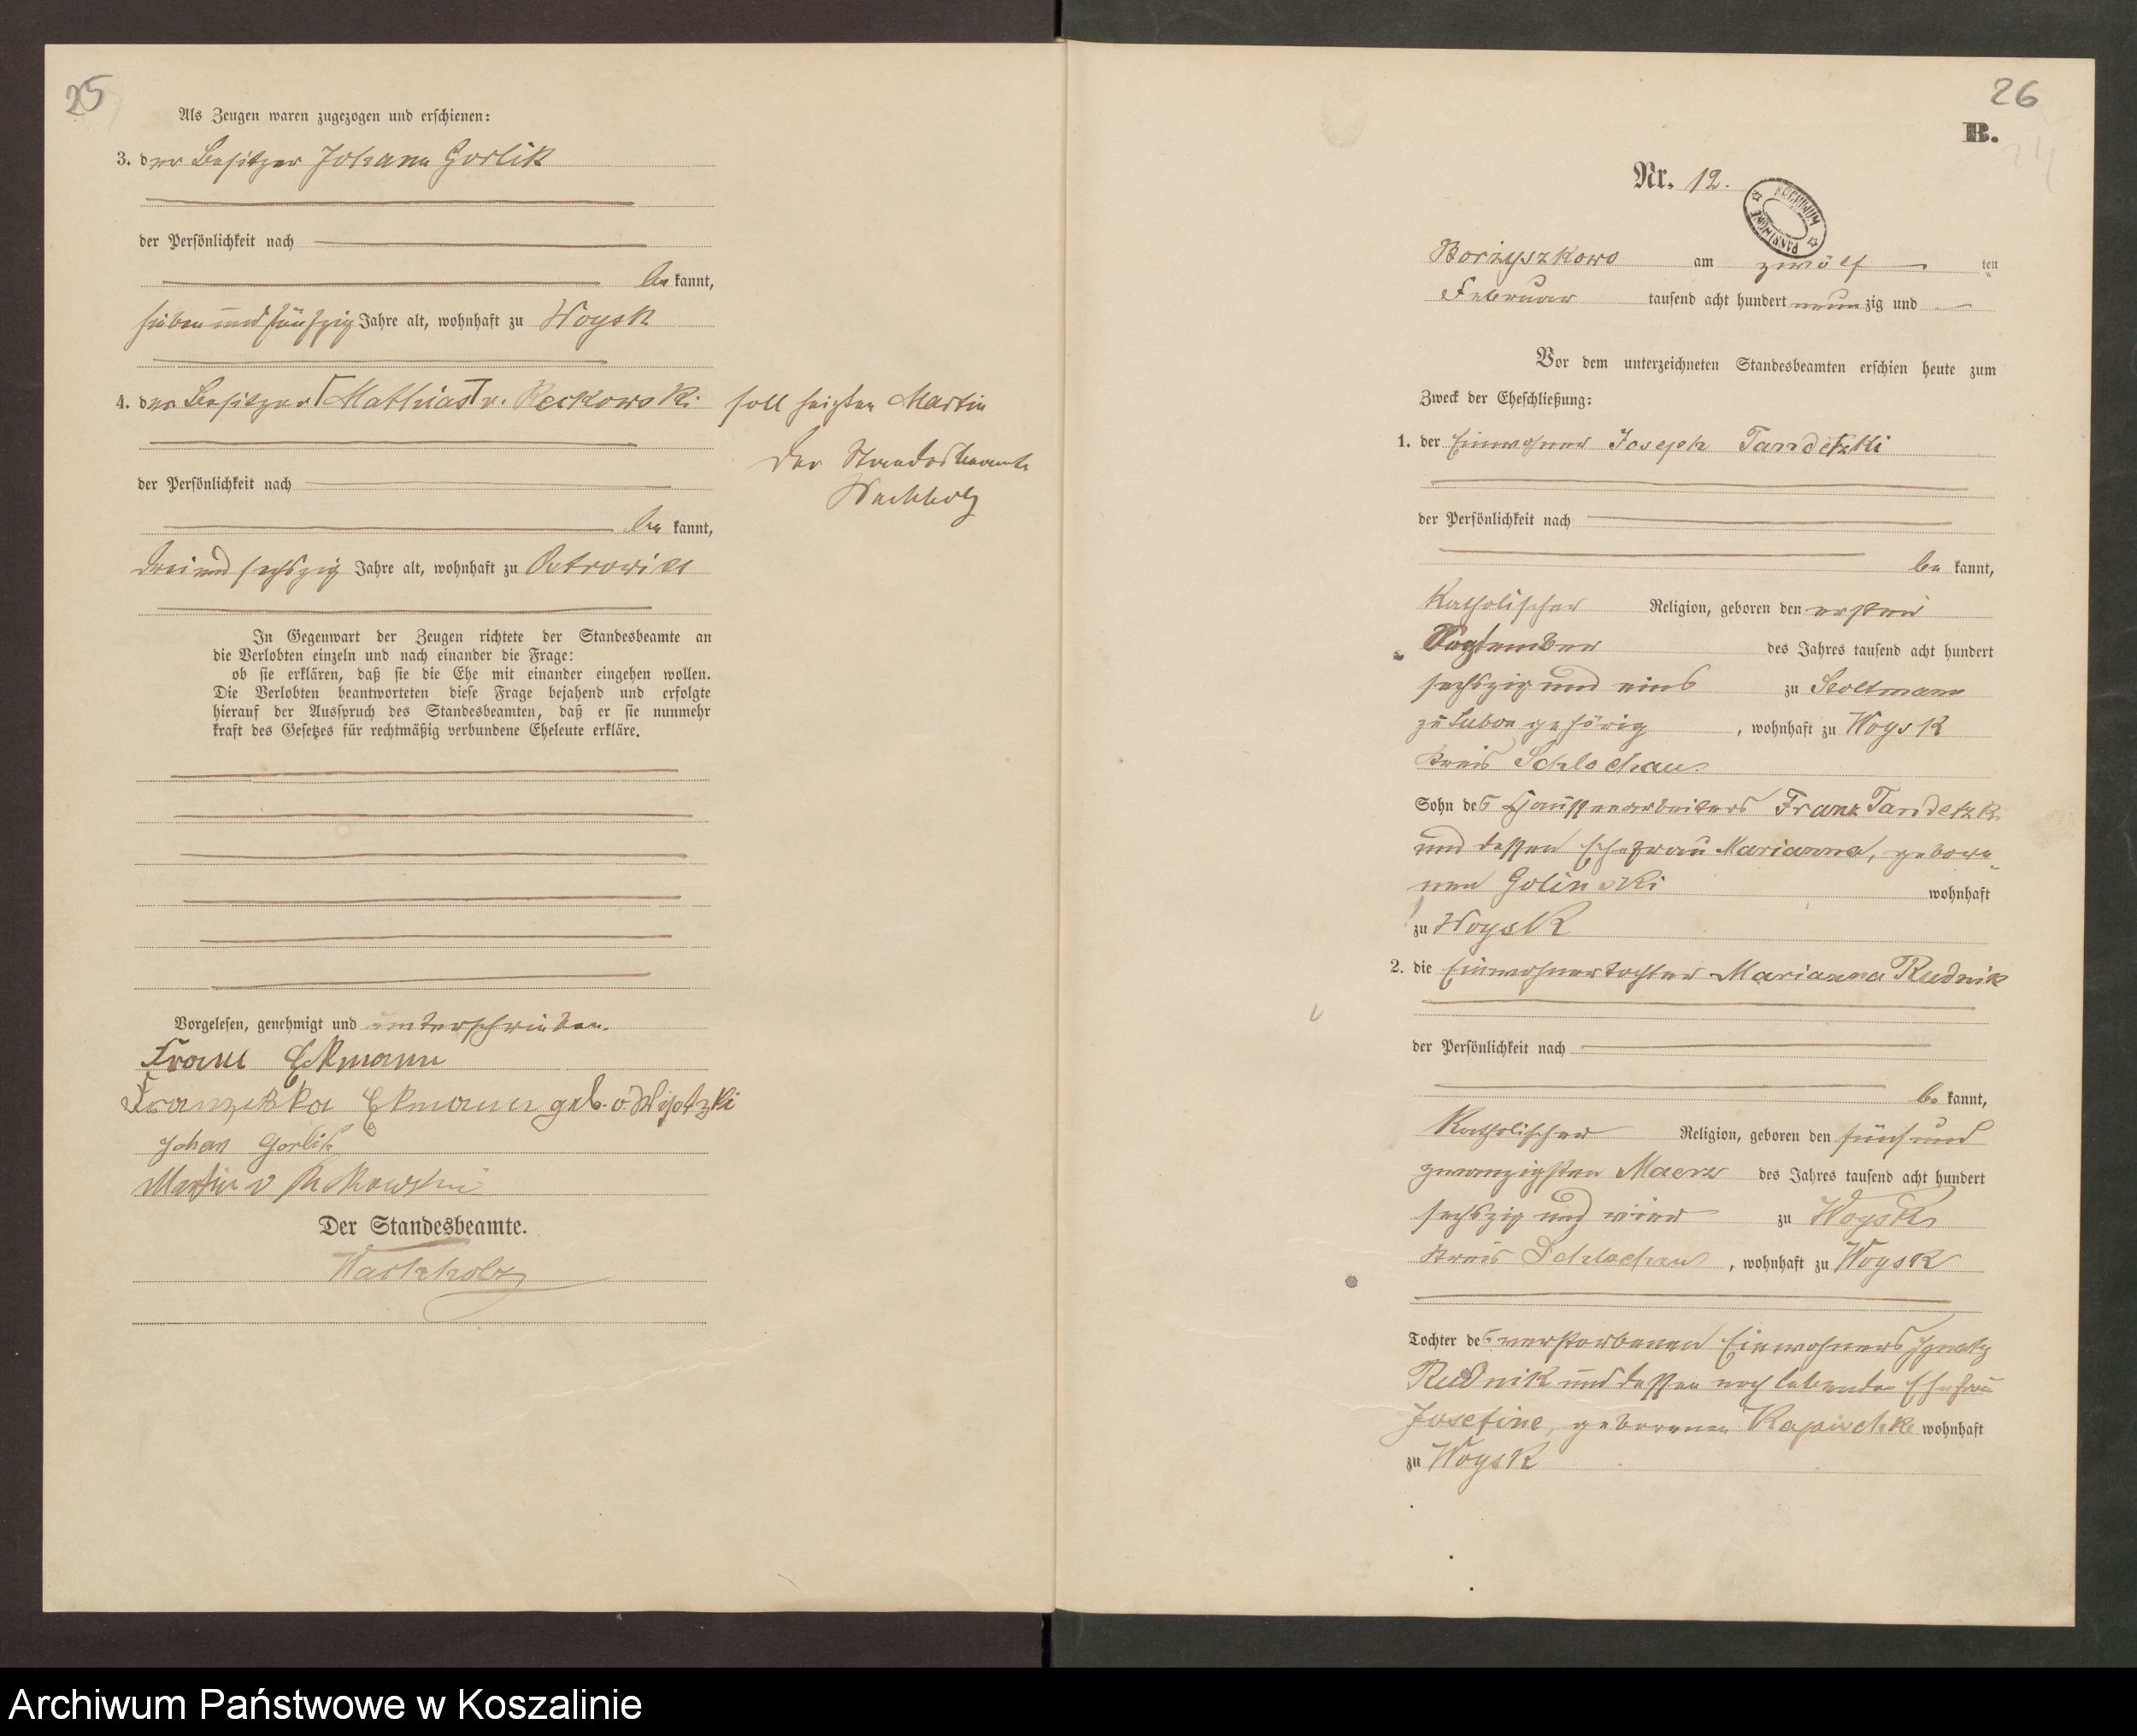 25
Als Zeugen waren zugezogen und erschienen:
3. der Besitzer Johann Gorlik
der Persönlichkeit nach
be kannt,
sieben und fünfzig Jahre alt, wohnhaft zu Woysk
4. der Besitzer Mathias v. Reckowski soll heißen Martin
Der Standesbeamte
Wachholz
der Persönlichkeit nach
be kannt,
drei und sechszig Jahre alt, wohnhaft zu
In Gegenwart der Zeugen richtete der Standesbeamte an
die Verlobten einzeln und nach einander die Frage:
ob sie erklären, daß sie die Ehe mit einander eingehen wollen.
Die Verlobten beantworteten diese Frage bejahend und erfolgte
hierauf der Ausspruch des Standesbeamten, daß er sie nunmehr
kraft des Gesetzes für rechtmäßig verbundene Eheleute erkläre.
Vorgelesen, genehmigt und unterschrieben.
Franz Ekmann
Ekmann geb. v.
Johan Gorlik
Martin v
Der Standesbeamte.
Wachholz
26
B.
Nr. 12.
ARCHIWUM PAŃSTWOWE
Borzyszkowo am zwölf ten
Februar tausend acht hundert neun zig und
Vor dem unterzeichneten Standesbeamten erschien heute zum
Zweck der Eheschließung:
1. der Einwohner Joseph Tandetzki
der Persönlichkeit nach
be kannt,
Katholischer Religion, geboren den ersten
September des Jahres tausend acht hundert
sechszig und eins zu
zu gehörig, wohnhaft zu Woysk
Kreis Schlochau.
Sohn des Franz Tandetzki
und dessen Ehefrau Marianna, gebore-
nen Golinski wohnhaft
zu Woysk
2. die Einwohnertochter Marianna Rudnik
der Persönlichkeit nach
be kannt,
Katholischer Religion, geboren den fünf und
zwanzigsten Maerz des Jahres tausend acht hundert
sechszig und vier zu Woysk
Kreis Schlochau, wohnhaft zu Woysk
Tochter des verstorbenen Einwohners Ignatz
Rudnik und dessen noch lebende Ehefrau
Josefine, geborenen wohnhaft
zu Woysk
Archiwum Państwowe w Koszalinie